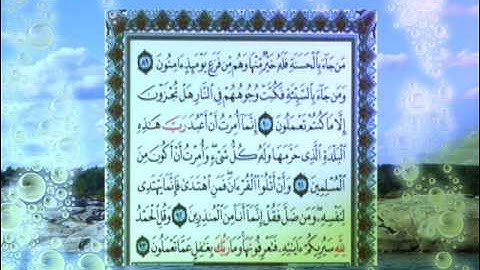 مَن جَآءَ بِٱلْحَسَنَةِ فَلَهُۥ خَيْرٌ مِّنْهَا وَهُم مِّن فَزَعٍ يَوْمَئِذٍ ءَامِنُونَ ٨٩
وَمَن جَآءَ بِٱلسَّيِّئَةِ فَكُبَّتْ وُجُوهُهُمْ فِى ٱلنَّارِ هَلْ تُجْزَوْنَ
إِلَّا مَا كُنتُمْ تَعْمَلُونَ ٩٠ إِنَّمَآ أُمِرْتُ أَنْ أَعْبُدَ رَبَّ هَٰذِهِ
ٱلْبَلْدَةِ ٱلَّذِى حَرَّمَهَا وَلَهُۥ كُلُّ شَىْءٍ وَأُمِرْتُ أَنْ أَكُونَ مِنَ
ٱلْمُسْلِمِينَ ٩١ وَأَنْ أَتْلُوَا۟ ٱلْقُرْءَانَ فَمَنِ ٱهْتَدَىٰ فَإِنَّمَا يَهْتَدِى
لِنَفْسِهِۦ وَمَن ضَلَّ فَقُلْ إِنَّمَآ أَنَا۠ مِنَ ٱلْمُنذِرِينَ ٩٢ وَقُلِ ٱلْحَمْدُ
لِلَّهِ سَيُرِيكُمْ ءَايَٰتِهِۦ فَتَعْرِفُونَهَا وَمَا رَبُّكَ بِغَٰفِلٍ عَمَّا تَعْمَلُونَ ٩٣